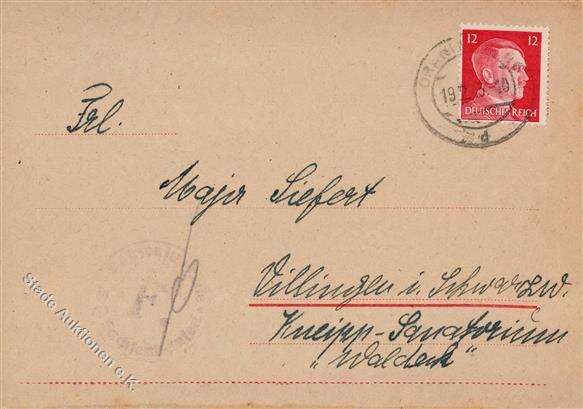 12 12
DEUTSCHES REICH
19
d
Frl.
Maja Siefert
Villingen i. Schwarzw.
Kneipp-Sanatorium
„Waldeck“
Stade Auktionen e.K.